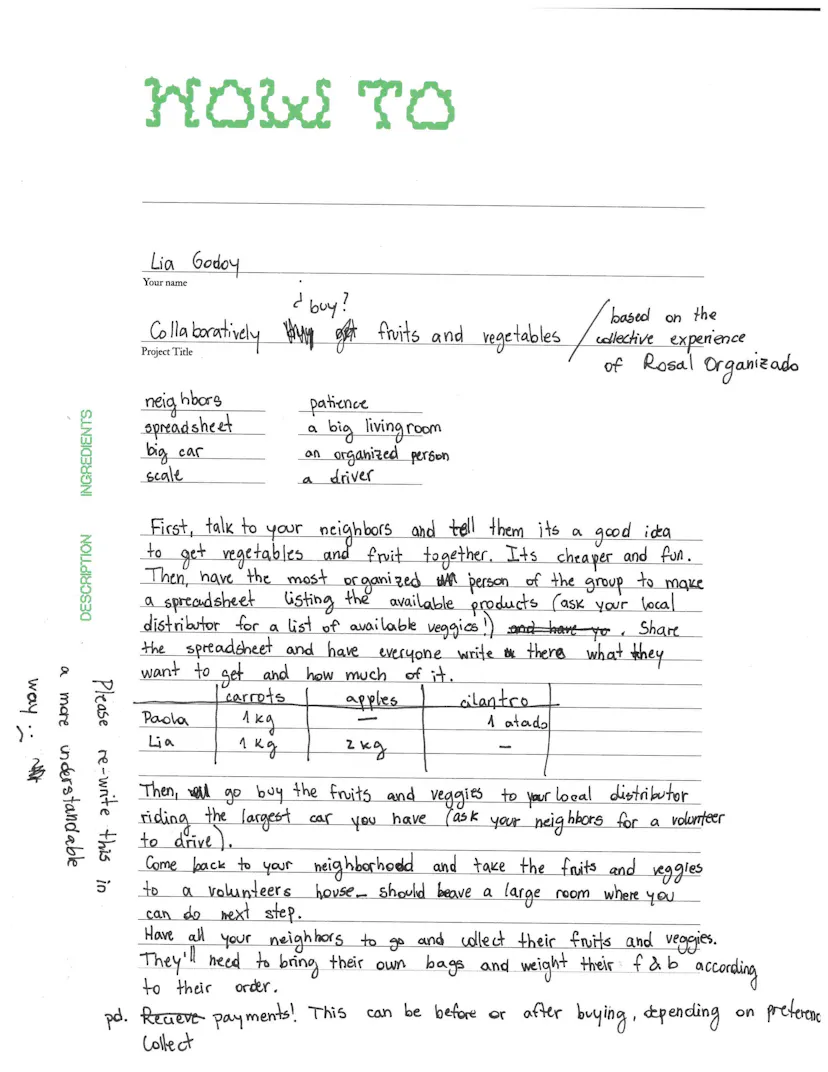 HOW TO
Lia Godoy
Your name
¿ buy?
Collaboratively get fruits and vegetables / based on the
collective experience
of Rosal Organizado
Project Title
INGREDIENTS
neighbors patience
spreadsheet a big livingroom
big car an organized person
scale a driver
DESCRIPTION
First, talk to your neighbors and tell them its a good idea
to get vegetables and fruit together. Its cheaper and fun.
Then, have the most organized person of the group to make
a spreadsheet listing the available products (ask your local
distributor for a list of available veggies!) and have yo . Share
the spreadsheet and have everyone write there what they
want to get and how much of it.
carrots apples cilantro
Paola 1 kg — 1 atado
Lia 1 kg 2 kg –
Then, go buy the fruits and veggies to your local distributor
riding the largest car you have (ask your neighbors for a volunteer
to drive).
Come back to your neighborhood and take the fruits and veggies
to a volunteers house_ should leave a large room where you
can do next step.
Have all your neighbors to go and collect their fruits and veggies.
They'll need to bring their own bags and weight their f & b according
to their order.
pd. Recieve payments! This can be before or after buying, depending on preferenc
Collect
Please re-write this in
a more understandable
way :)